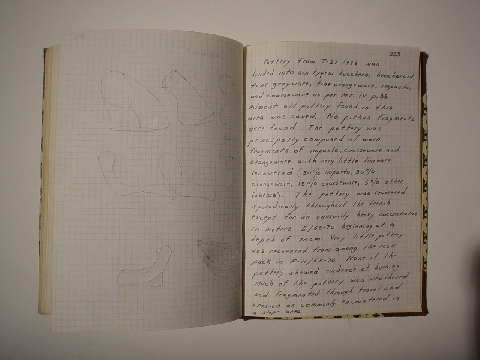 223
Pottery from T-27 1998 was
divided into six types: bucchero, buccheroid
fine greyware, fine orangeware, impasto,
and coarseware as per Mt. IV p. 88
Almost all pottery found in this
area was saved. No pithos fragments
were found. The pottery was
principally composed of worn
fragments of impasto, coarseware and
orangeware with very little fineware
recovered. (50% impasto, 30%
orangeware, 15% coarseware, 5% other
fabrics). The pottery was recovered
sporadically throughout the trench
except for an unusually heavy concentration
in meters 6/68-70 beginning at a
depth of Very little pottery
was recovered from among the rock
pack in None of the
pottery showed evidence of burning
Much of the pottery was weathered
and fragmented through travel and
erosion as commonly encountered in
a slope area